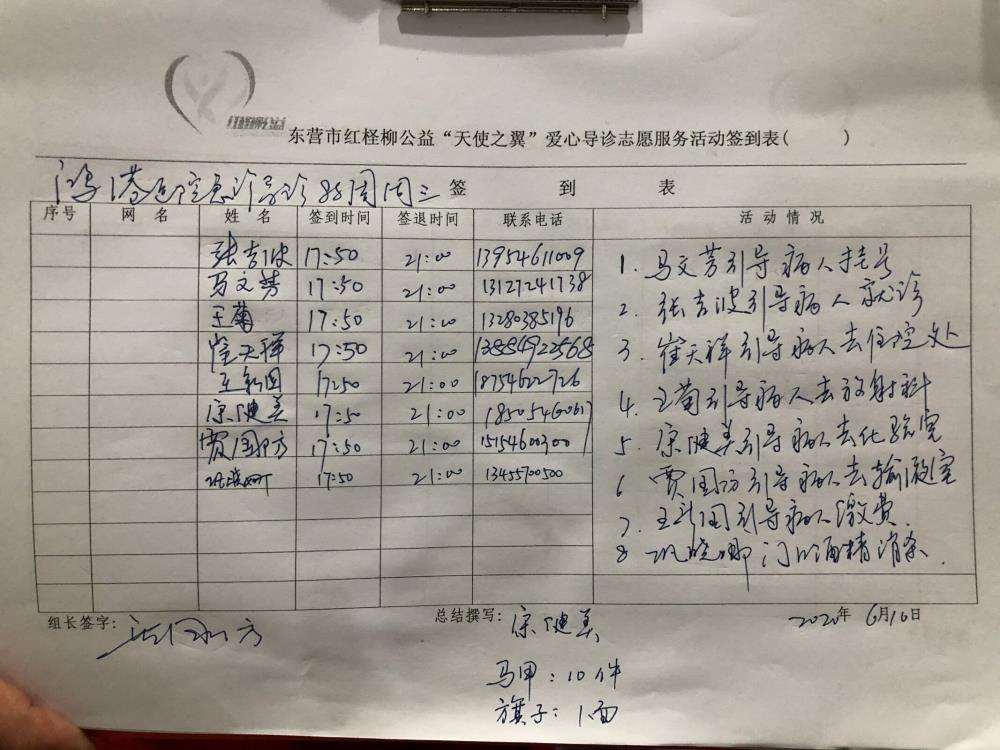 红柽柳公益
东营市红柽柳公益“天使之翼”爱心导诊志愿服务活动签到表( )
鸿港医院急诊导诊88周周三 签 到 表
序号 网 名 姓 名 签到时间 签退时间 联系电话 活 动 情 况
张吉波 17:50 21:00 13954611009
马文芳 17:50 21:00 13127241738
王菊 17:50 21:00 13280385196
崔天祥 17:50 21:00 13854922568
王新国 17:50 21:00 18754622726
宗健美 17:50 21:00 18505460617
贾国方 17:50 21:00 15154600300
巩晓娜 17:50 21:00 13455700500
1. 马文芳引导病人挂号
2. 张吉波引导病人就诊
3. 崔天祥引导病人去住院处
4. 王菊引导病人去放射科
5. 宗健美引导病人去化验室
6 贾国方引导病人去输液室
7. 王新国引导病人缴费.
8 巩晓娜门口酒精消杀.
组长签字:
总结撰写: 宗健美
2020年 6月10日
马甲:10件
旗子:1面